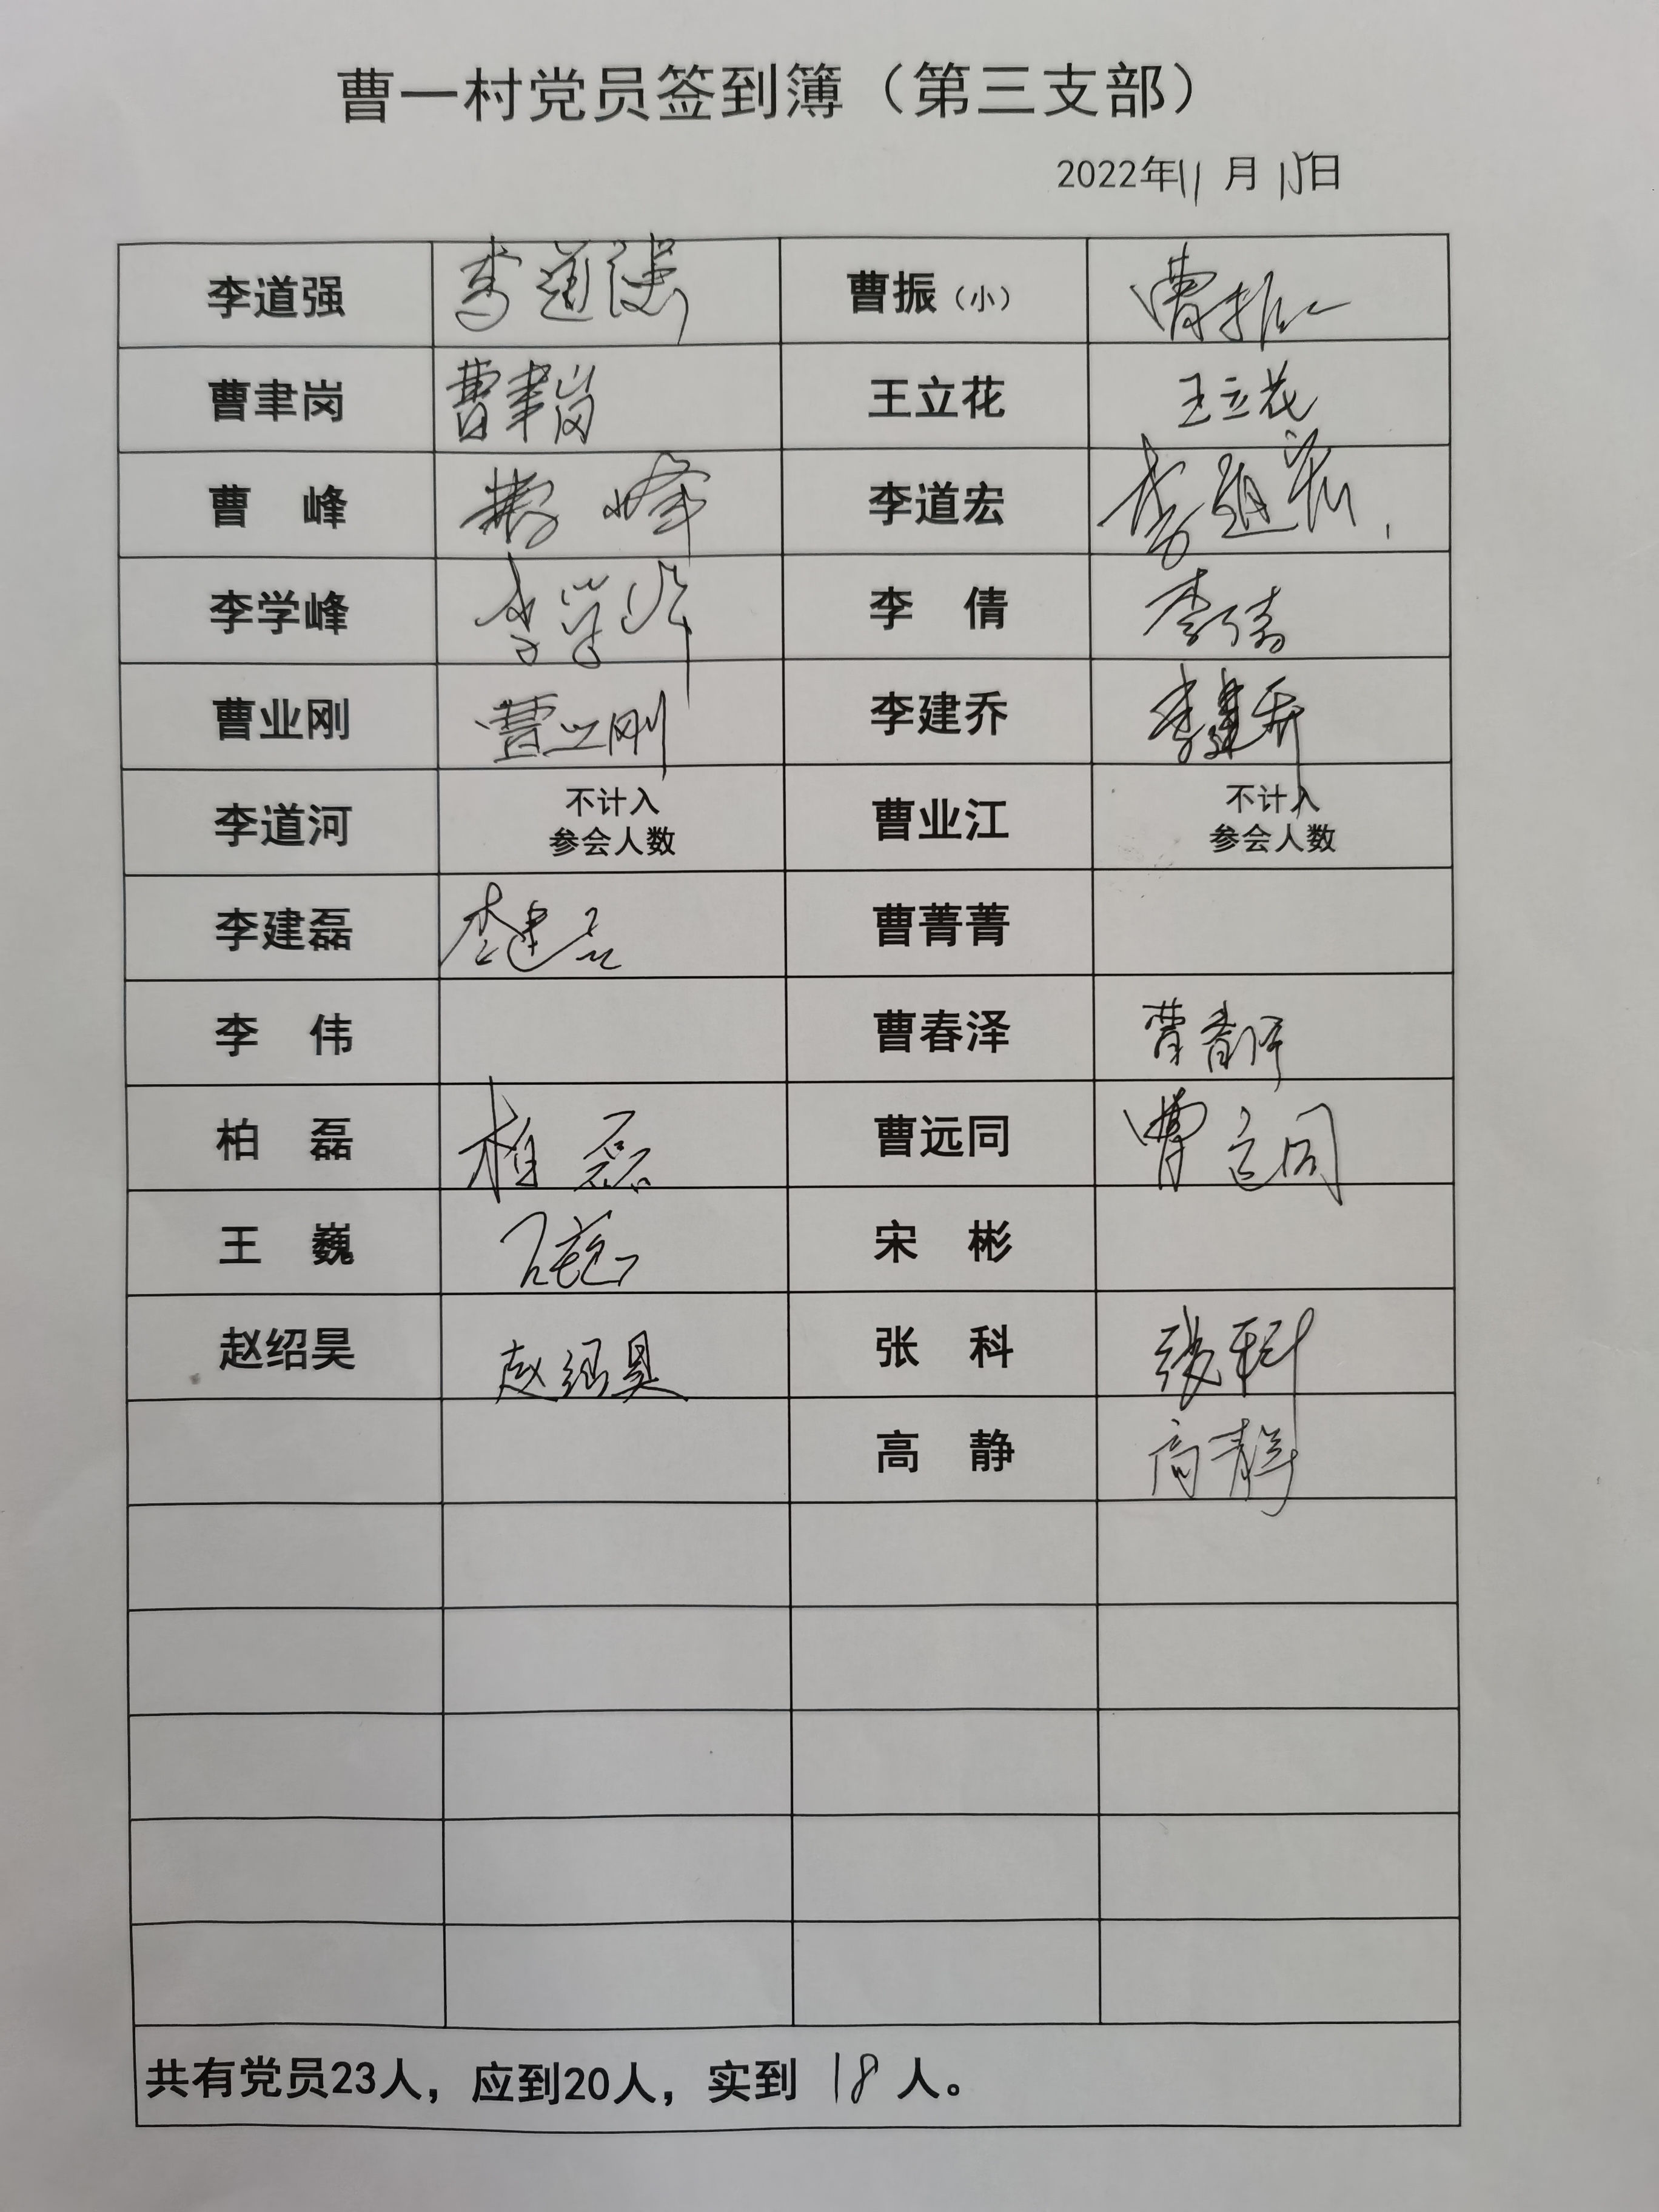 曹一村党员签到簿（第三支部）
2022年11月15日
李道强 李道强 曹振（小） 曹振小
曹聿岗 曹聿岗 王立花 王立花
曹 峰 曹峰 李道宏 李道宏
李学峰 李学峰 李 倩 李倩
曹业刚 曹业刚 李建乔 李建乔
李道河 不计入 曹业江 不计入
参会人数 参会人数
李建磊 李建磊 曹菁菁
李 伟 曹春泽 曹春泽
柏 磊 柏磊 曹远同 曹远同
王 巍 王巍 宋 彬
赵绍昊 赵绍昊 张 科 张科
高 静 高静
共有党员23人，应到20人，实到 18 人。